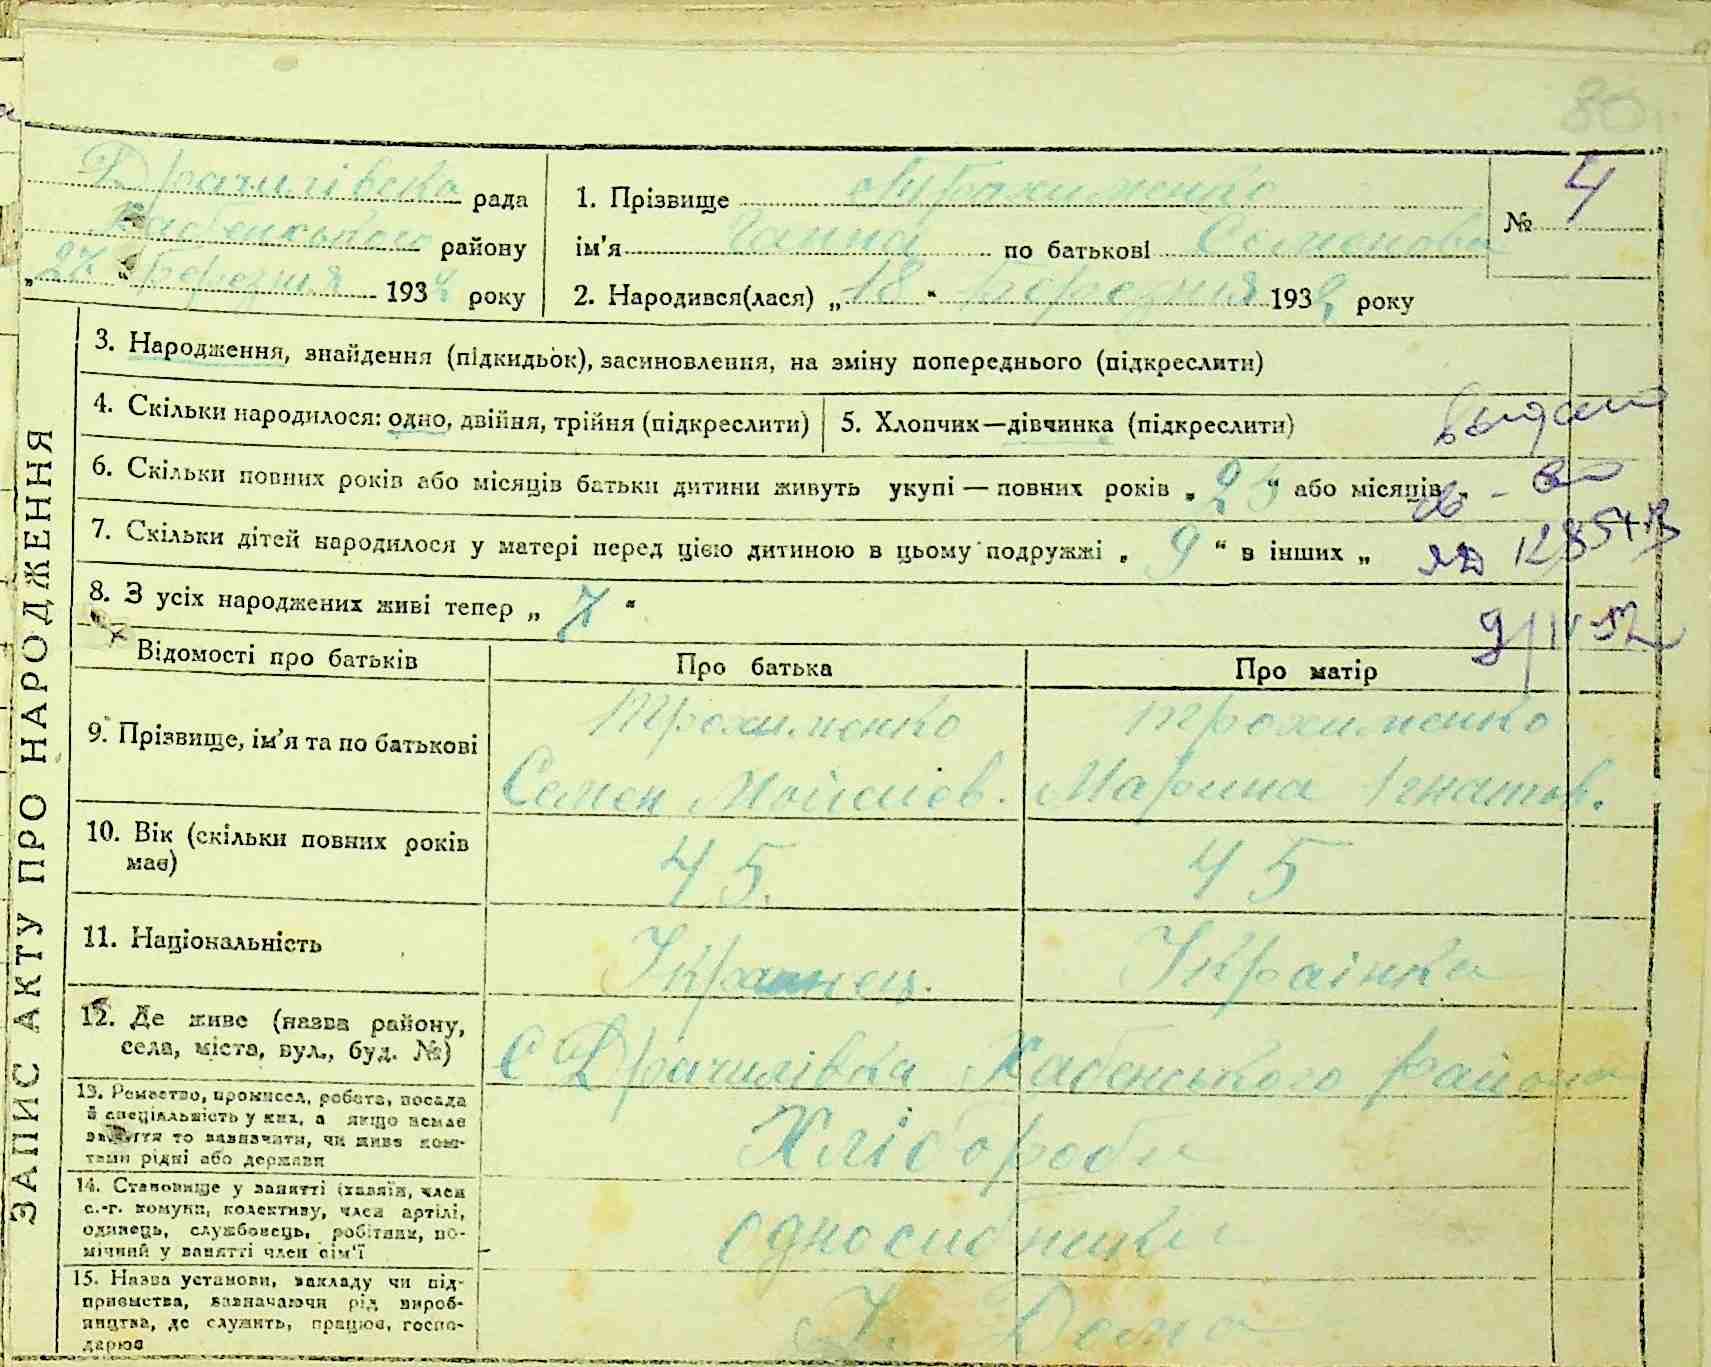 80
Драчилівска рада
Хабенського району
„27“ Березня 1932 року
1. Прізвище Трохименко
ім'я Ганна по батькові Семенова
2. Народився(лася) „18“ Березня 1932 року
№ 4
ЗАПИС АКТУ ПРО НАРОДЖЕННЯ
3. Народження, знайдення (підкидьок), засиновлення, на зміну попереднього (підкреслити)
4. Скільки народилося: одно, двійня, трійня (підкреслити)
5. Хлопчик—дівчинка (підкреслити)
6. Скільки повних років або місяців батьки дитини живуть укупі — повних років „25“ або місяців „
7. Скільки дітей народилося у матері перед цією дитиною в цьому подружжі „9“ в інших „
8. З усіх народжених живі тепер „7“
Відомості про батьків
Про батька
Про матір
9. Прізвище, ім'я та по батькові
Трохименко
Семен Мойсеїв.
Трохименко
Марина Ігнатов.
10. Вік (скільки повних років
має)
45.
45
11. Національність
Українец.
Українка
12. Де живе (назва району,
села, міста, вул., буд. №)
С Драчилівка Хабенського району
13. Ремество, промисел, робота, посада
й спеціяльність у них, а якщо немає
заняття то зазначити, чи живе кош-
тами рідні або держави
Хлібороби
14. Становище у занятті (хазяїн, член
с.-г. комуни, колективу, член артілі,
одинець, службовець, робітник, по-
мічний у занятті член сім'ї
односибники
15. Назва установи, закладу чи під-
приємства, зазначаючи рід вироб-
ництва, де служить, працює, госпо-
дарює
У Дома